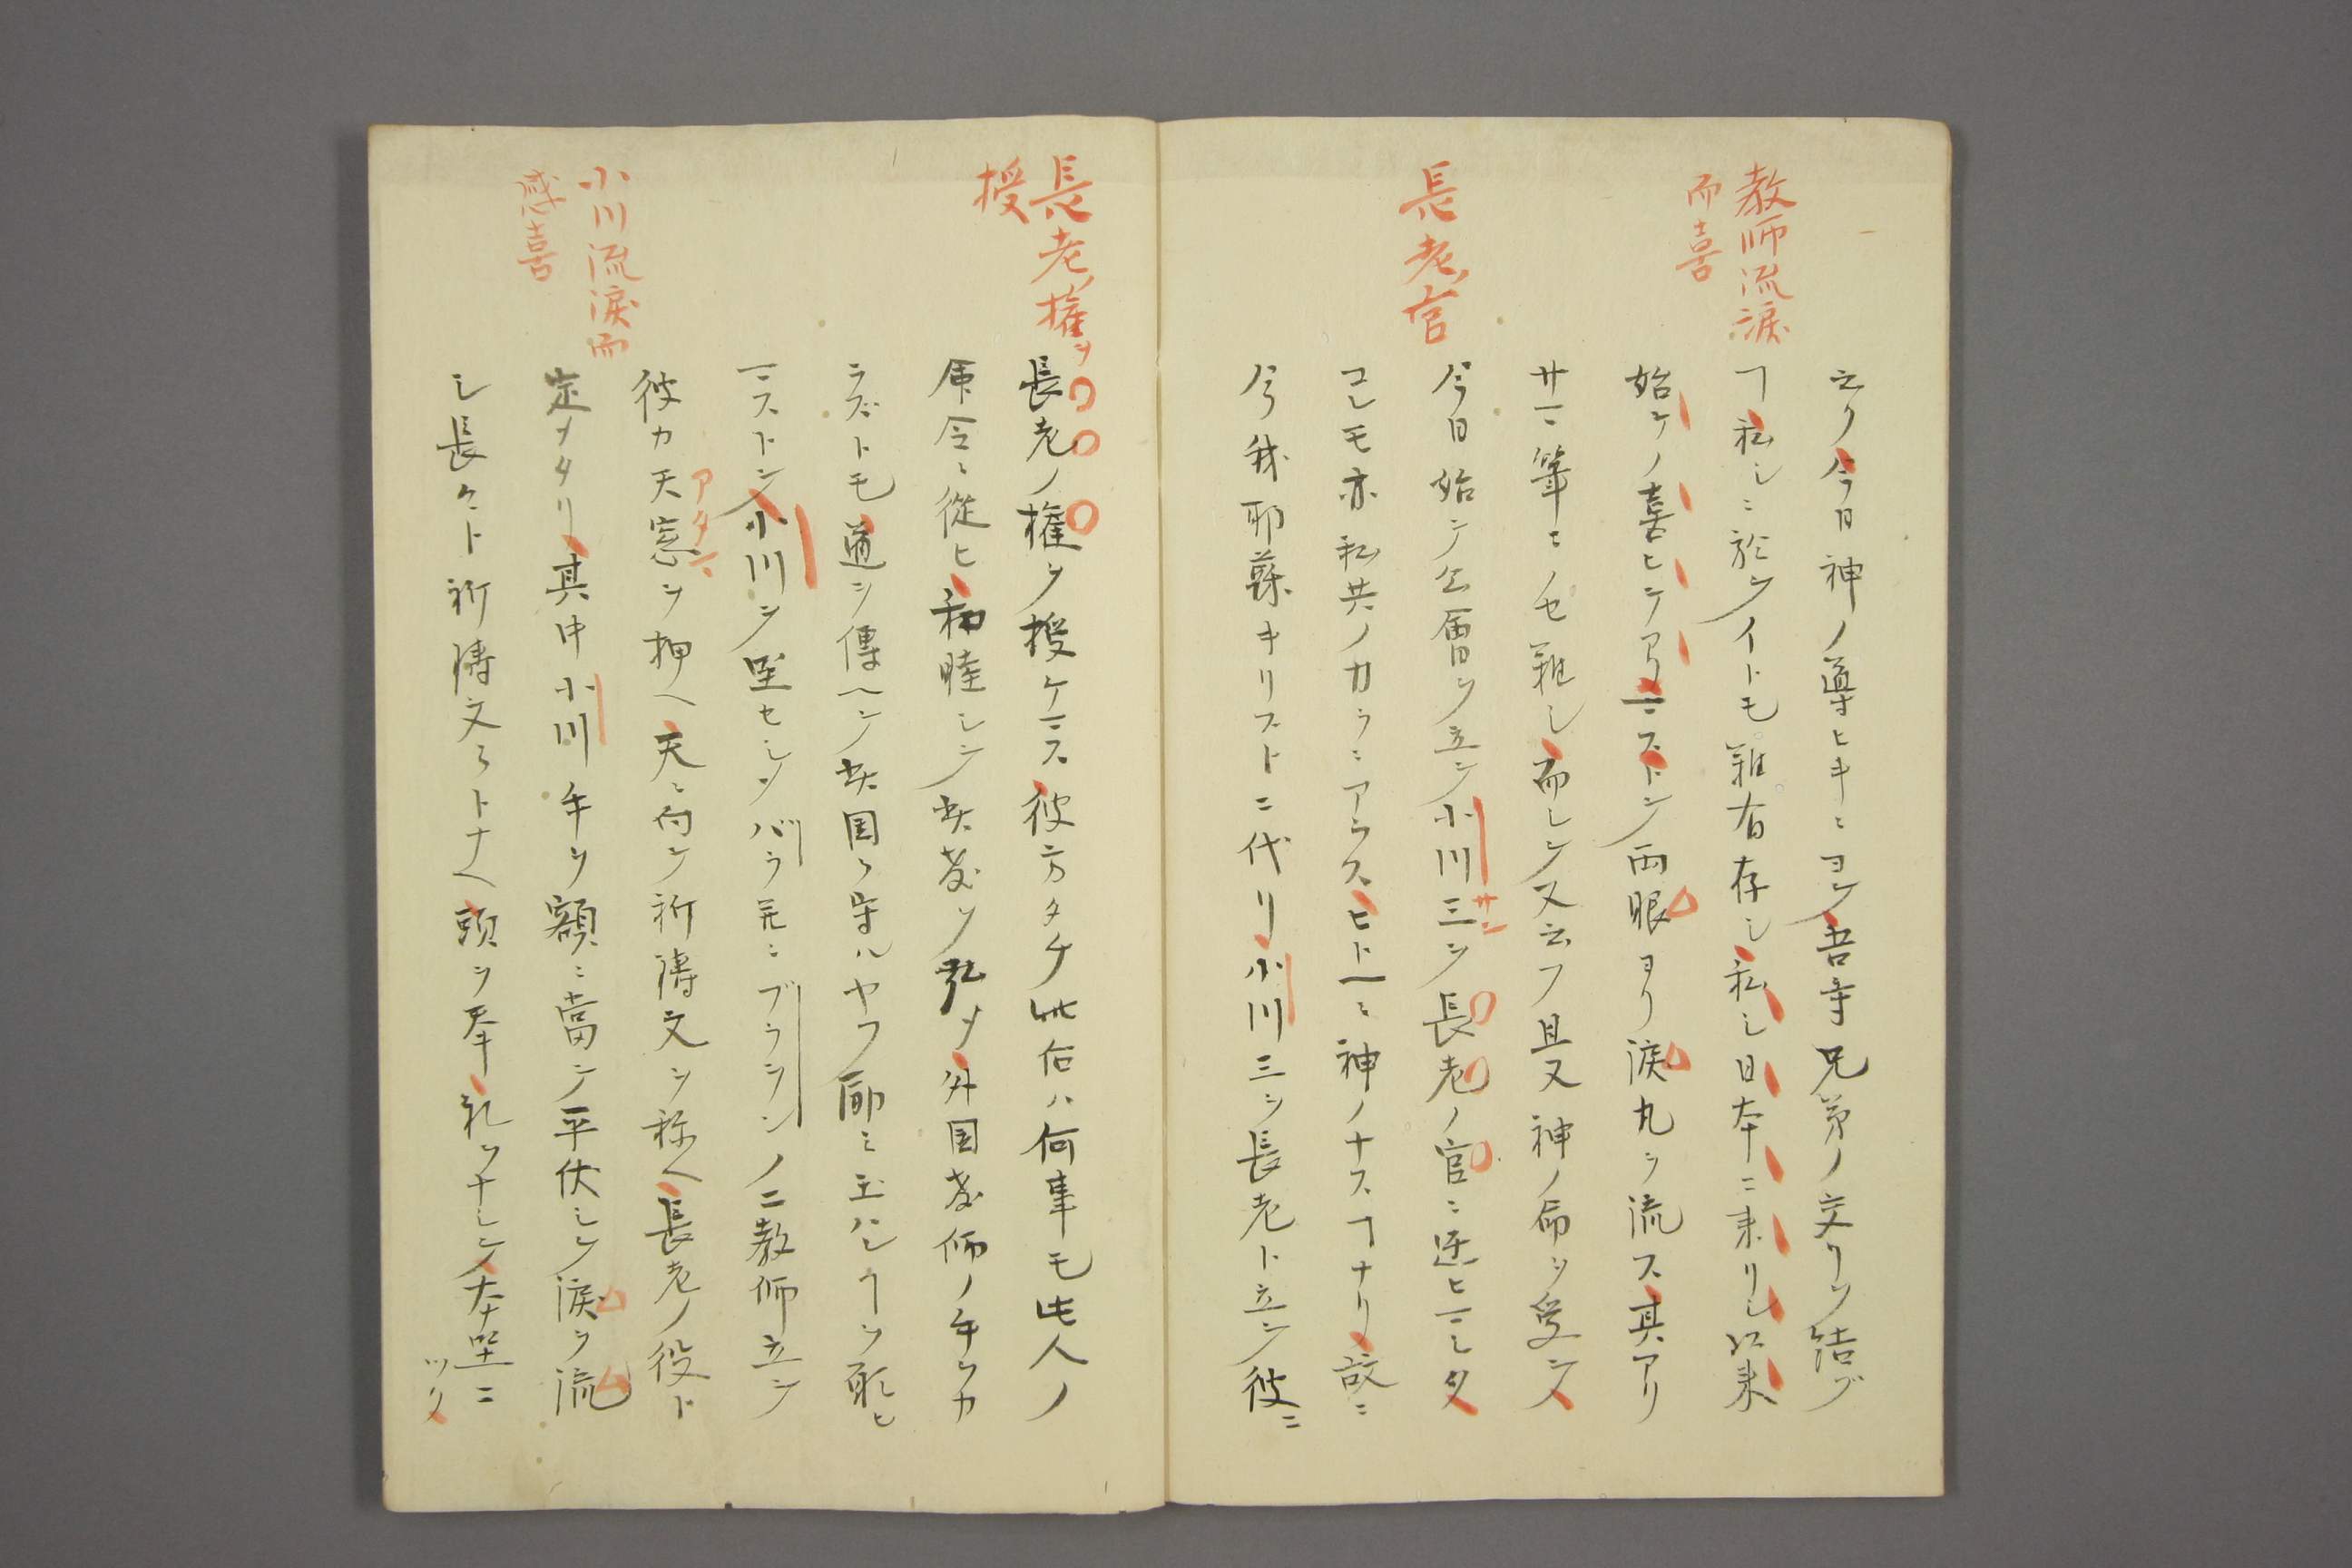 教師流涙
而喜
云ク今日神ノ導ヒキニヨツテ吾寺兄弟ノ交リヲ結ブ
ヿ私シニ於テイトモ難有存シ私シ日本ニ来リシ以来
始テノ喜ヒテアリマストテ両眼ヨリ涙丸ヲ流ス其アリ
サマ筆ニノセ難シ而シテ又云フ且又神ノ命ヲ受テ
長老官
今日始テ公會ヲ立テ小川三ヲ長老ノ官ニ迁ヒマシタ
サン
コレモ亦私共ノカラニアラスヒトヘニ神ノナスヿナリ故ニ
今我耶蘇キリストニ代リ小川三ヲ長老ト立テ彼ニ
長老権ヲ
授
長老ノ権ヲ授ケマス彼方タチ此后ハ何事モ此人ノ
命令ニ從ヒ和睦シテ此教ヲ弘メ外国教師ノ手ヲカ
ラズトモ道ヲ傳ヘテ此国ヲ守ルヤフ励ミ玉ハレヿヲ願ヒ
マストテ小川ヲ坐セシメバラ并ニブラウンノ二教師立テ
彼カ天窓ヲ押ヘ天ニ向テ祈祷文ヲ称ヘ長老ノ役ト
アタマ
小川流涙而
感喜
定メタリ其中小川手ヲ額ニ當テ平伏シテ涙ヲ流
シ長々ト祈祷文ヲトナヘ頭ヲ奉礼ヲナシテ本坐ニ
ツク